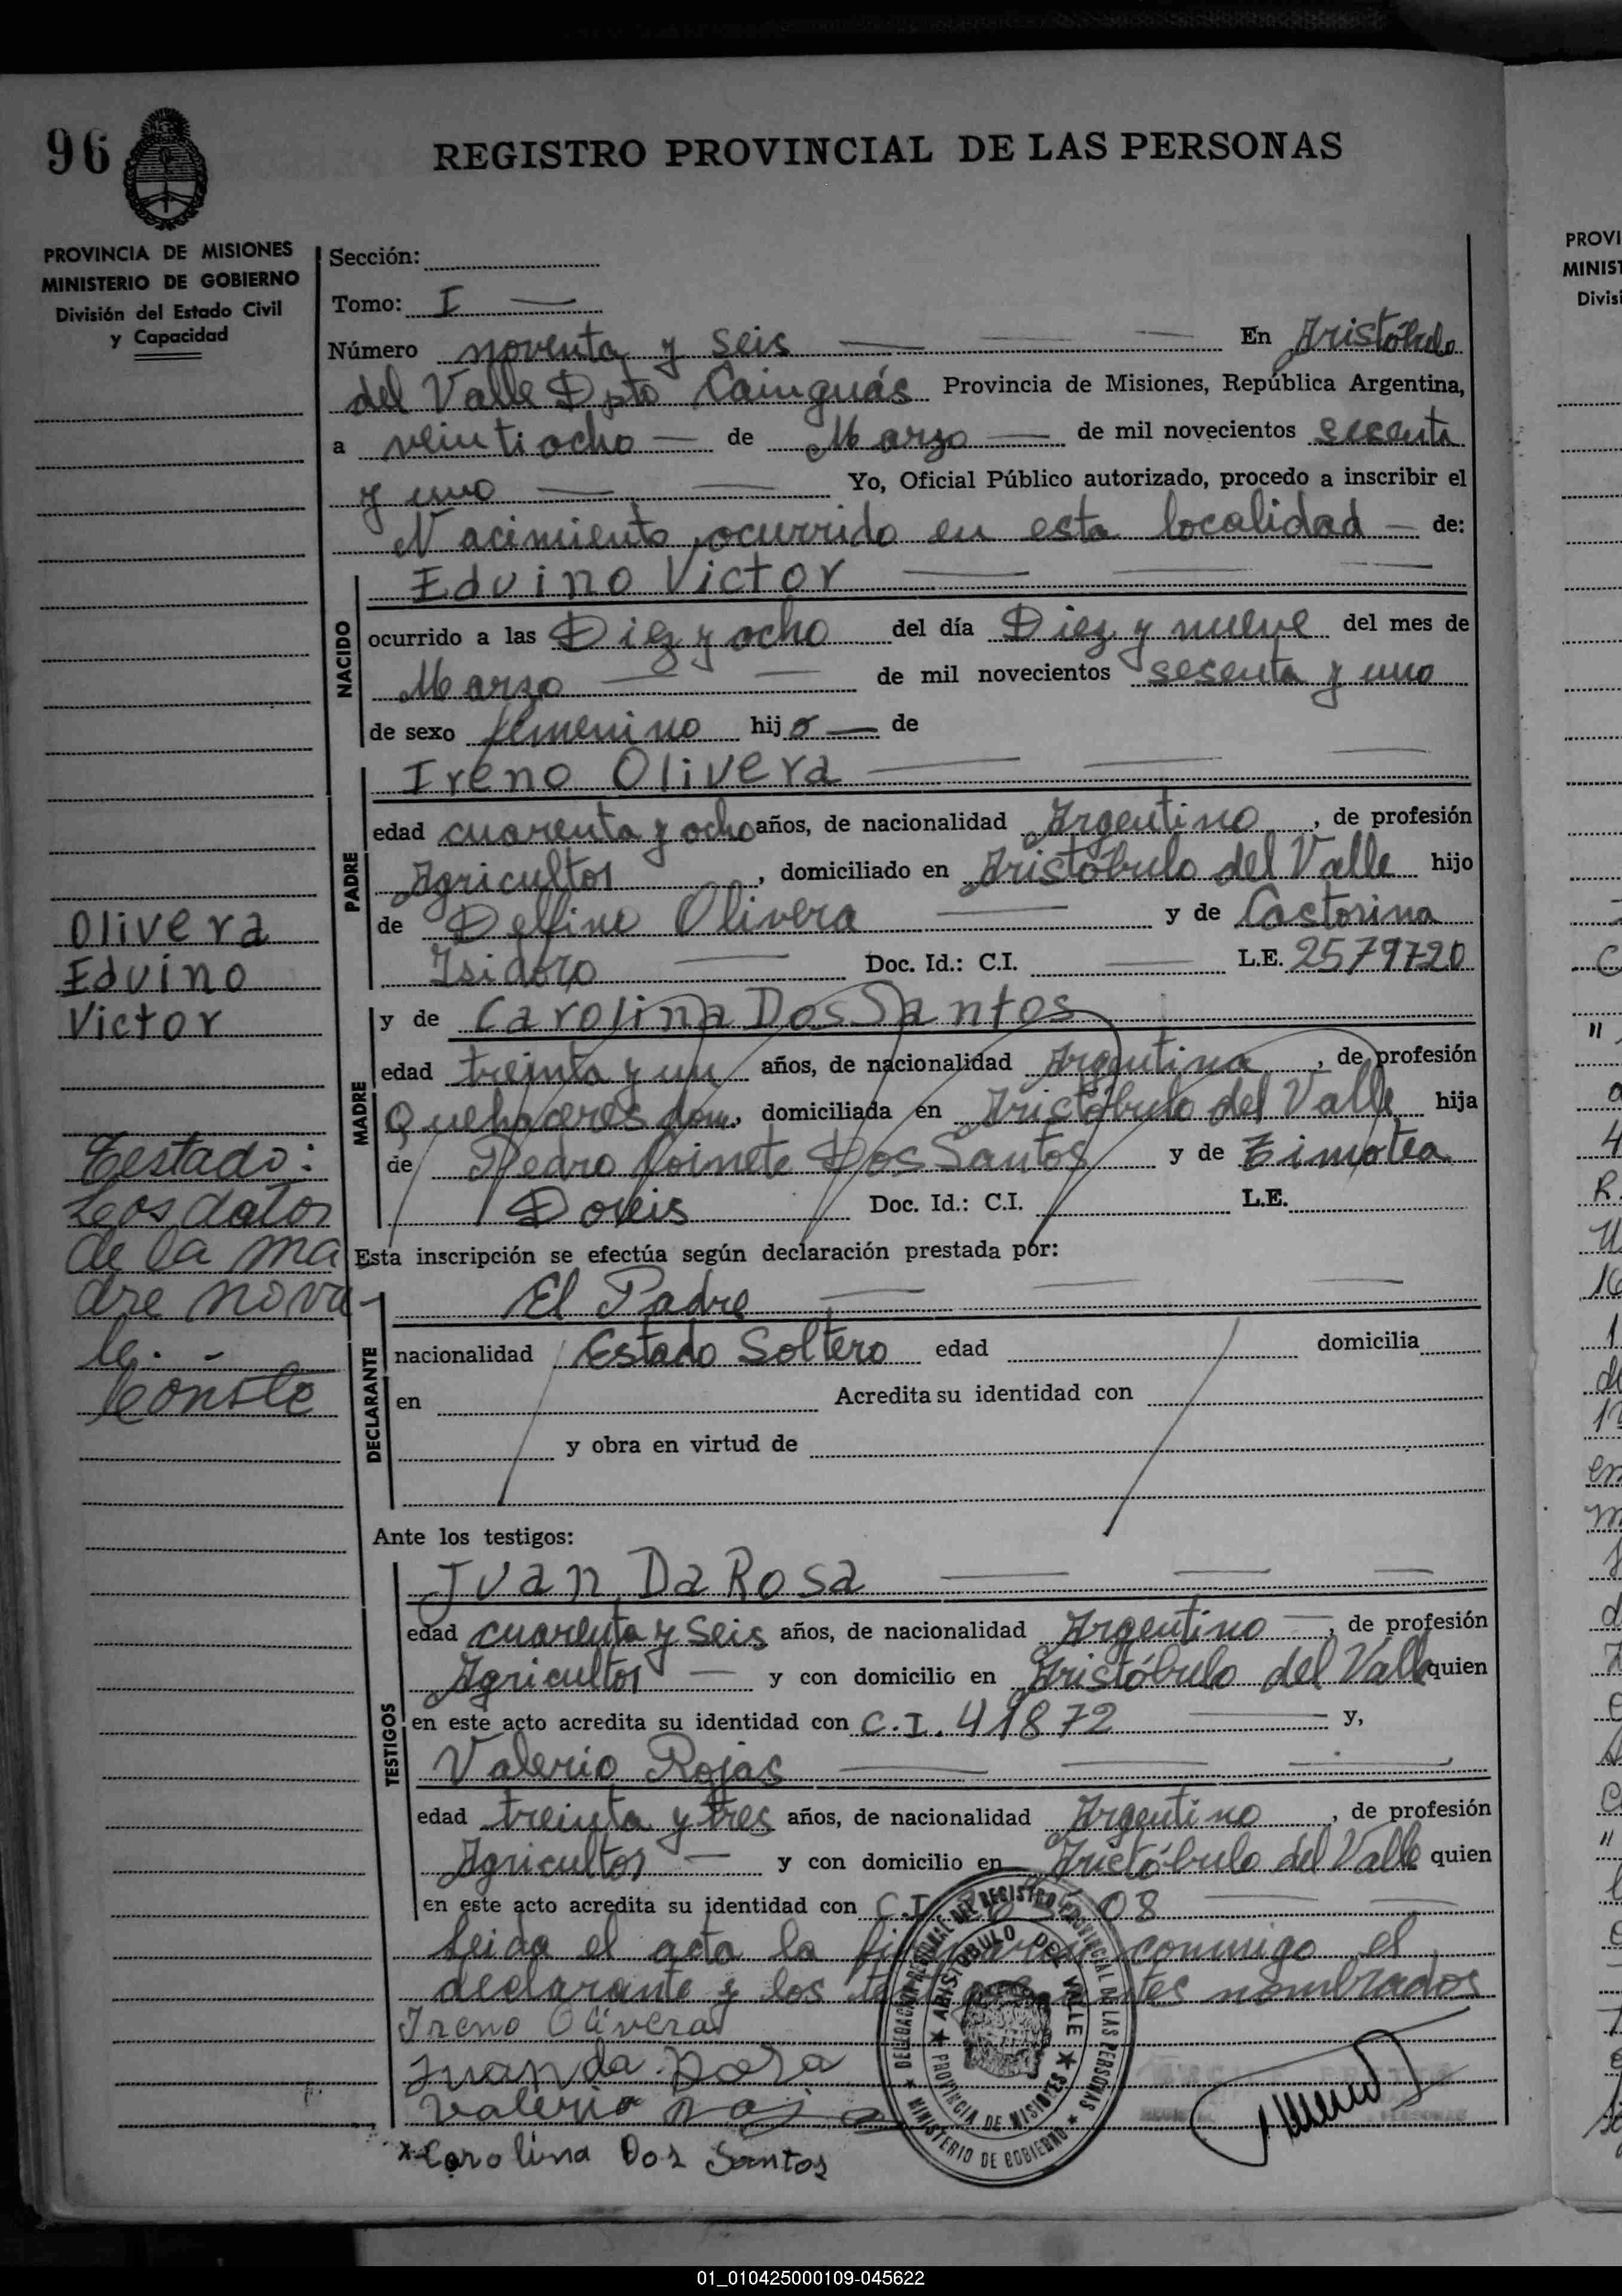 96
REGISTRO PROVINCIAL DE LAS PERSONAS
PROVINCIA DE MISIONES
MINISTERIO DE GOBIERNO
División del Estado Civil
y Capacidad
Sección:
Tomo: I
Número noventa y seis En Aristóbulo
del Valle Dpto Cainguás Provincia de Misiones, República Argentina,
a veintiocho de Marzo de mil novecientos sesenta
y uno Yo, Oficial Público autorizado, procedo a inscribir el
Nacimiento, ocurrido en esta localidad de:
NACIDO
Eduino Victor
ocurrido a las Diez y ocho del día Diez y nueve del mes de
Marzo de mil novecientos sesenta y uno
de sexo femenino hijo de
PADRE
Ireno Olivera
edad cuarenta y ocho años, de nacionalidad Argentino, de profesión
Agricultor, domiciliado en Aristóbulo del Valle hijo
de Delfino Olivera y de Castorina
Isidoro Doc. Id.: C.I. L.E. 2579720
MADRE
y de Carolina Dos Santos
edad treinta y un años, de nacionalidad Argentina, de profesión
Quehaceres dom., domiciliada en Aristóbulo del Valle hija
de Pedro Dos Santos y de Timotea
Doc. Id.: C.I. L.E.
Esta inscripción se efectúa según declaración prestada por:
DECLARANTE
El Padre
nacionalidad Estado Soltero edad domicilia
en Acredita su identidad con
y obra en virtud de
Olivera
Eduino
Victor
Testado:
Los datos
de la ma
dre no va-
le. -
Conste
Ante los testigos:
TESTIGOS
Juan Da Rosa
edad cuarenta y seis años, de nacionalidad Argentino, de profesión
Agricultor y con domicilio en Aristóbulo del Valle quien
en este acto acredita su identidad con C.I. 41872 y,
Valerio Rojas
edad treinta y tres años, de nacionalidad Argentino, de profesión
Agricultor y con domicilio en Aristóbulo del Valle quien
en este acto acredita su identidad con C.I. 08
Leida el acta la firmaron conmigo el
declarante y los nombrados
Ireno Olivera
Juan da Rosa
Valerio
*Carolina Dos Santos
DELEGACION REGIONAL DEL REGISTRO PROVINCIAL DE LAS PERSONAS
ARISTOBULO DEL VALLE
PROVINCIA DE MISIONES
MINISTERIO DE GOBIERNO
PROVI
MINIST
Divisi
01_010425000109-045622